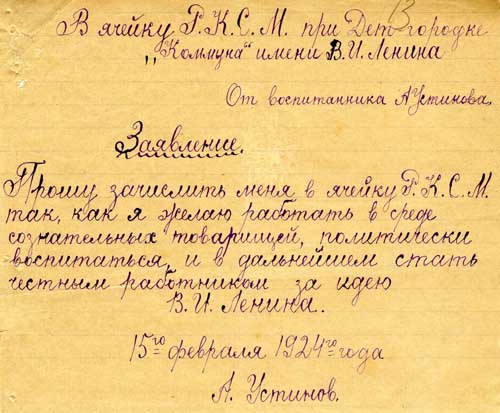 В ячейку Р.К.С.М. при Дет городке
„Коммуна" имени В.И.Ленина
От воспитанника А Устинова.
Заявление.
Прошу зачислить меня в ячейку Р.К.С.М.
так, как я желаю работать в среде
сознательных товарищей, политически
воспитаться, и в дальнейшем стать
честным работником за идею
В.И.Ленина.
15го февраля 1924го года
А. Устинов.